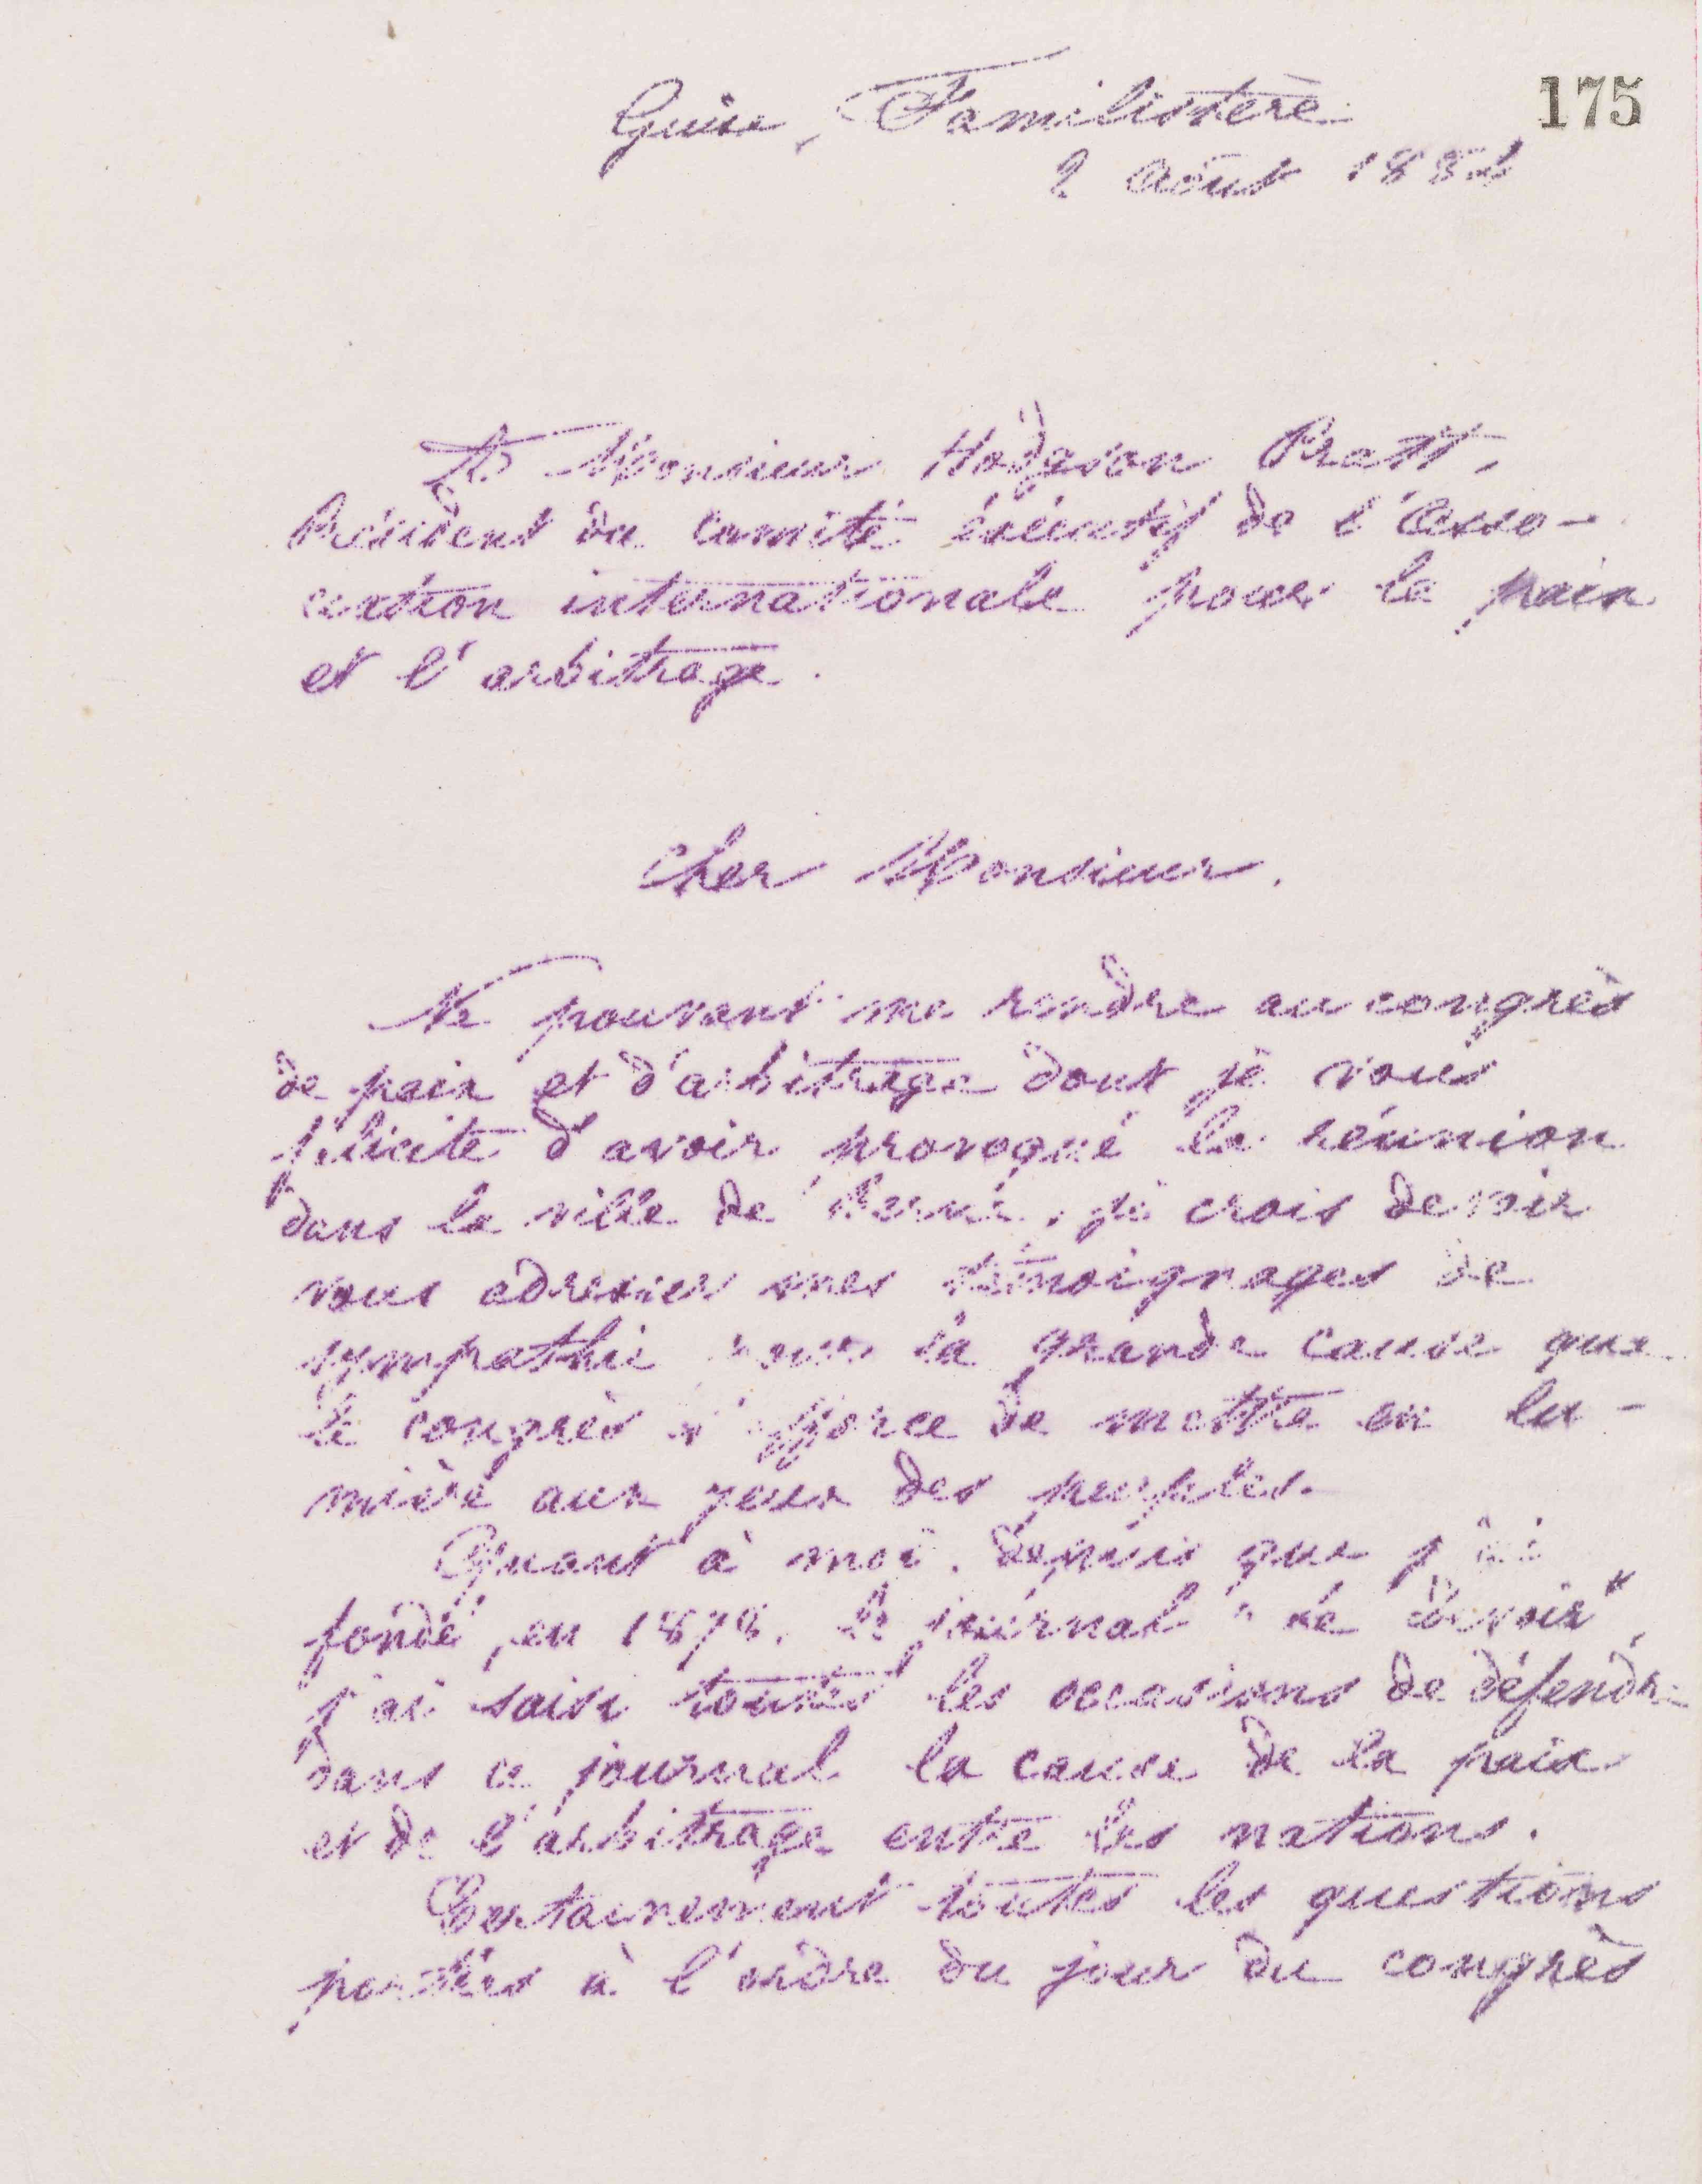 175
Guise, Familistère
2 Août 1884
A Monsieur Hodgson Pratt,
Président du Comité exécutif de l'Asso-
ciation internationale pour la paix
et l'arbitrage.
Cher Monsieur,
Ne pouvant me rendre au congrès
de paix et d'arbitrage dont je vous
félicite d'avoir provoqué la réunion
dans la ville de Berne, je crois devoir
vous adresser mes témoignages de
sympathie pour la grande cause que
le congrès s'efforce de mettre en lu-
mière aux yeux des peuples.
Quant à moi, depuis que j'ai
fondé, en 1878, le journal "Le Devoir",
j'ai saisi toutes les occasions de défendre
dans ce journal la cause de la paix
et de l'arbitrage entre les nations.
Certainement toutes les questions
portées à l'ordre du jour du congrès